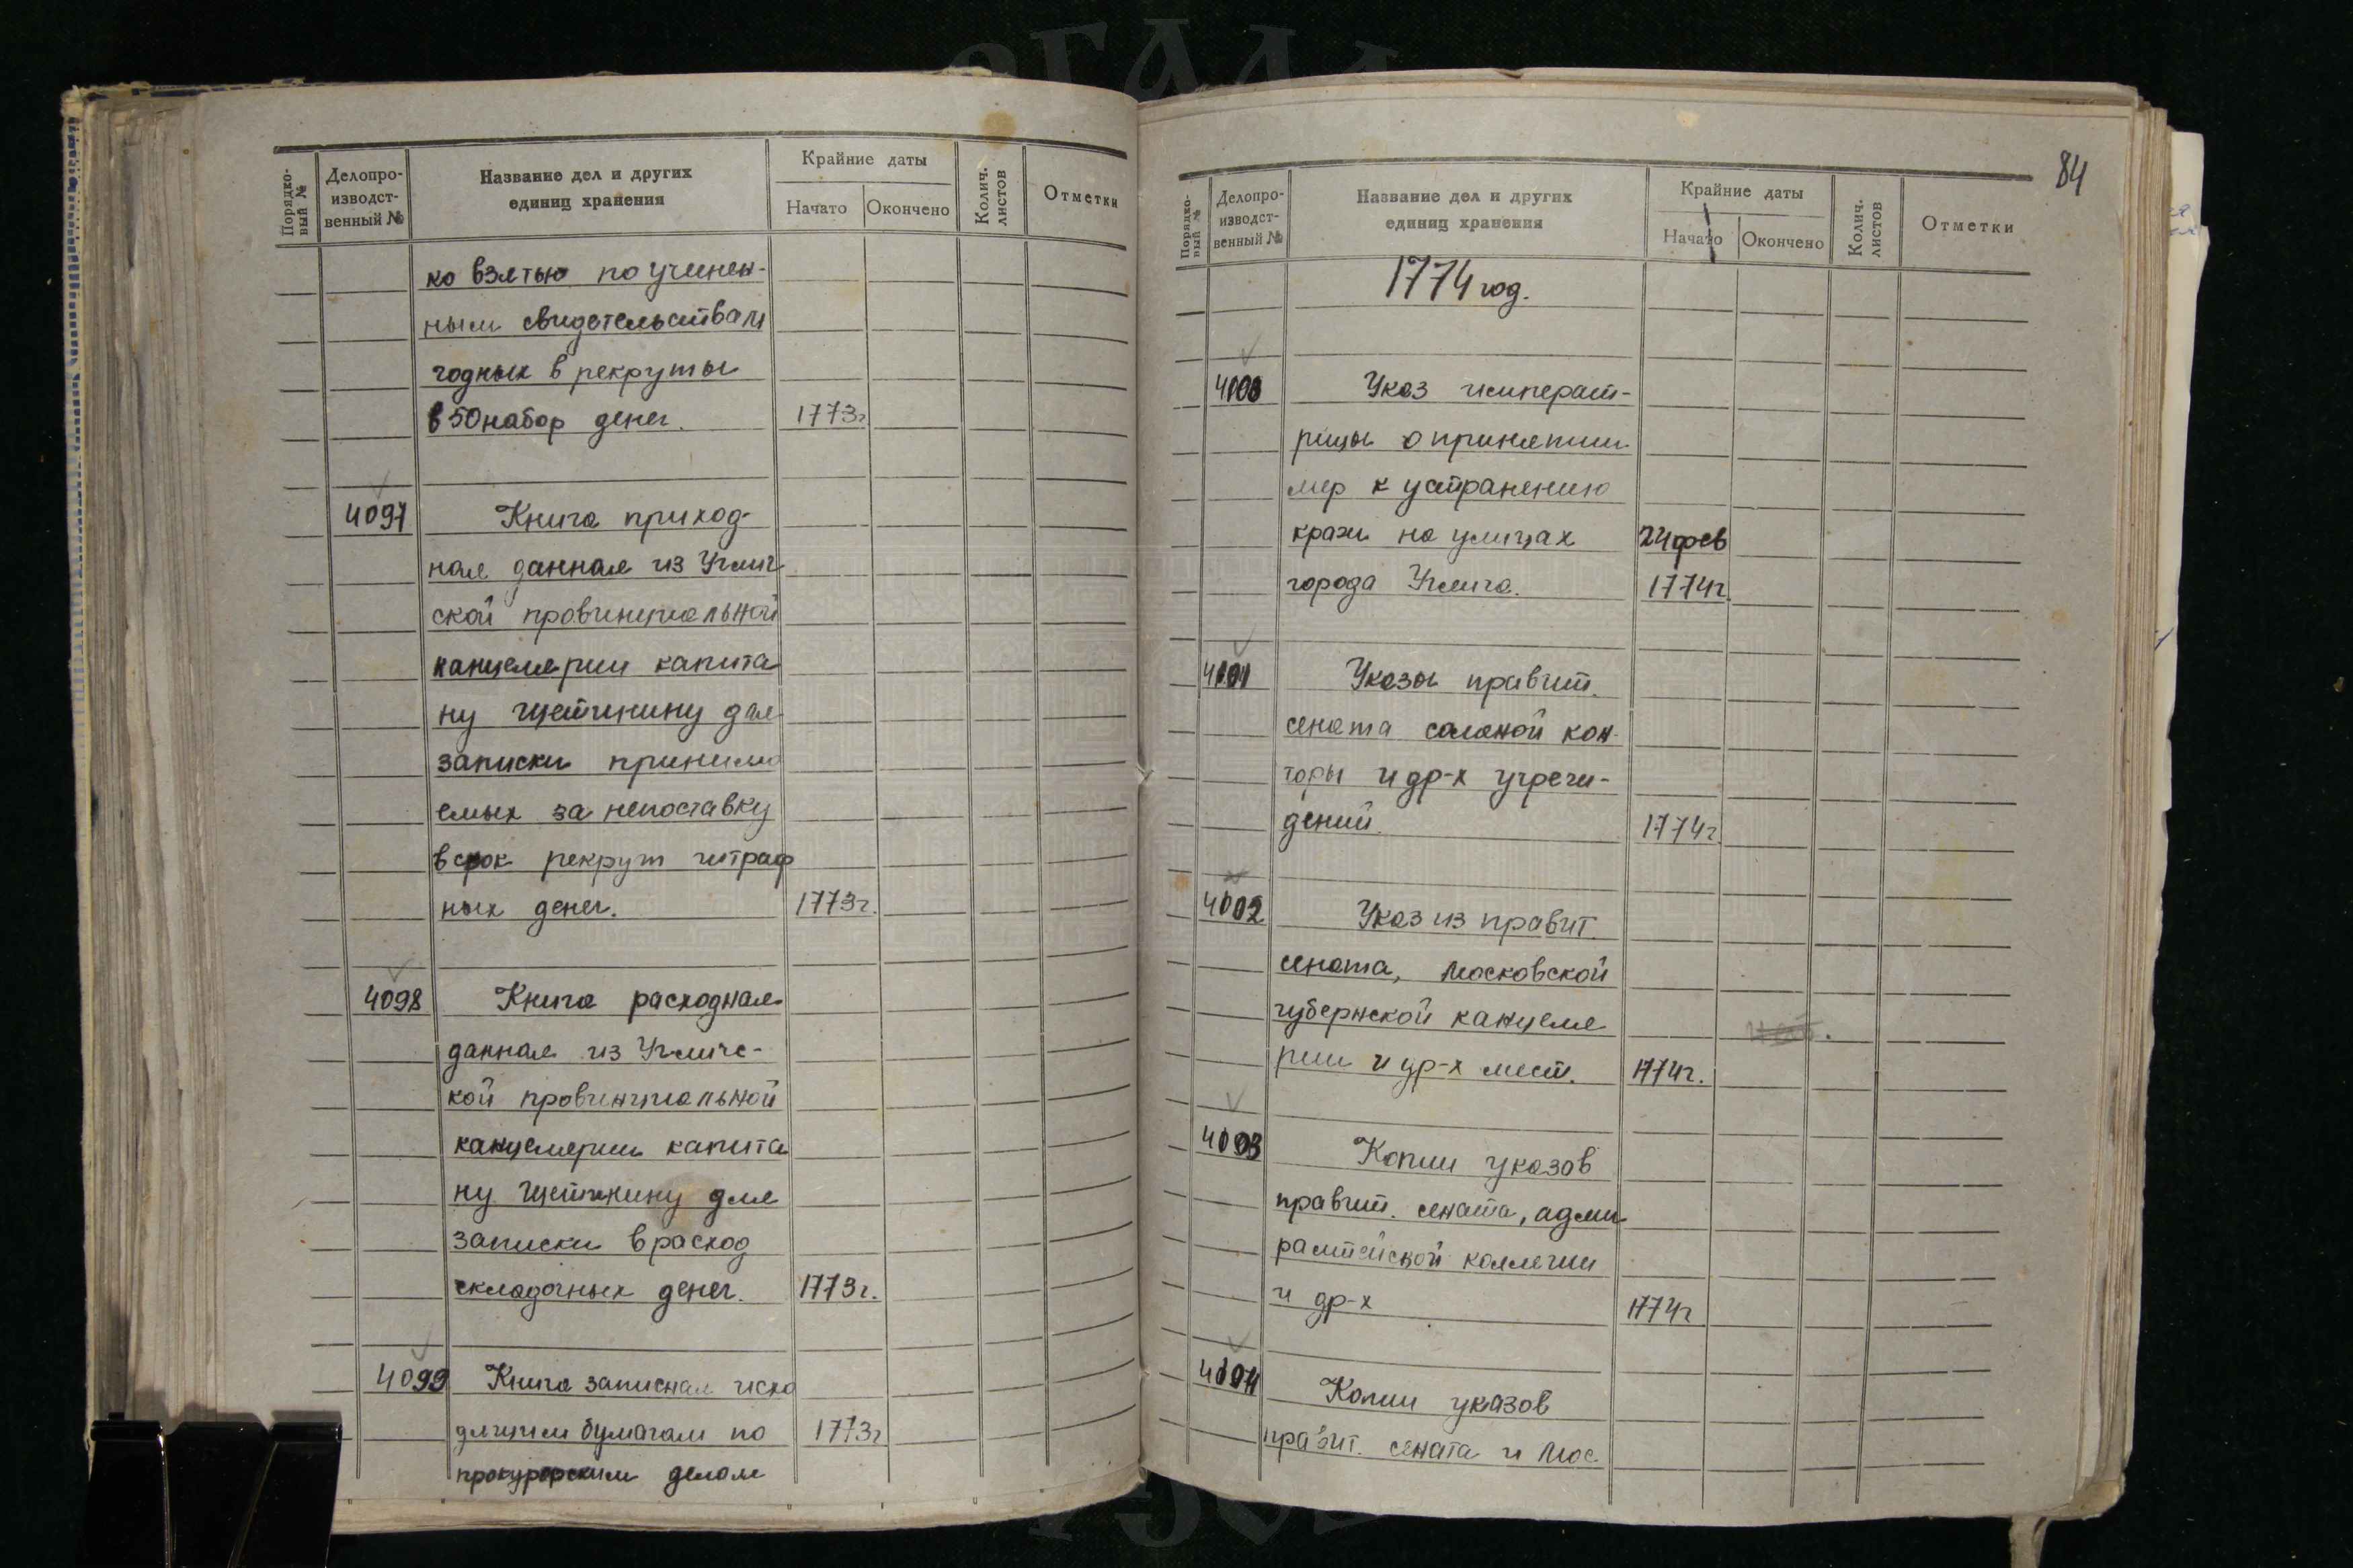 Порядко-
вый №
Делопро-
изводст-
венный №
Название дел и других
единиц хранения
Крайние даты
Начато
Окончено
Колич.
листов
Отметки
ко взятью по учинен-
ным свидетельствам
годных в рекруты
в 50 набор денег. 1773г
4097 Книга приход-
ная данная из Углич
ской провинциальной
канцелярии капита
ну Щетинину для
записки принима
емых за непоставку
в срок рекрут штраф
ных денег. 1773г.
4098 Книга расходная
данная из Угличс-
кой провинциальной
канцелярии капита
ну Щетинину для
записки в расход
складочных денег. 1773г.
4099 Книга записная исхо
дящим бумагам по 1773г
прокурорским делам
84
Порядко-
вый №
Делопро-
изводст-
венный №
Название дел и других
единиц хранения
Крайние даты
Начато
Окончено
Колич.
листов
Отметки
1774 год.
4100 Указ императ-
рицы о принятии
мер к устранению
кражи на улицах 24 фев
города Углича. 1774г.
4101 Указы правит.
сената соляной кон-
торы и др-х учреж-
дений. 1774г.
4102 Указ из правит.
сената, Московской
губернской канцеля
рии и др-х мест. 1774г.
4103 Копии указов
правит. сената, адми
ралтейской коллегии
и др-х 1774г
4104 Копии указов
правит. сената и Мос